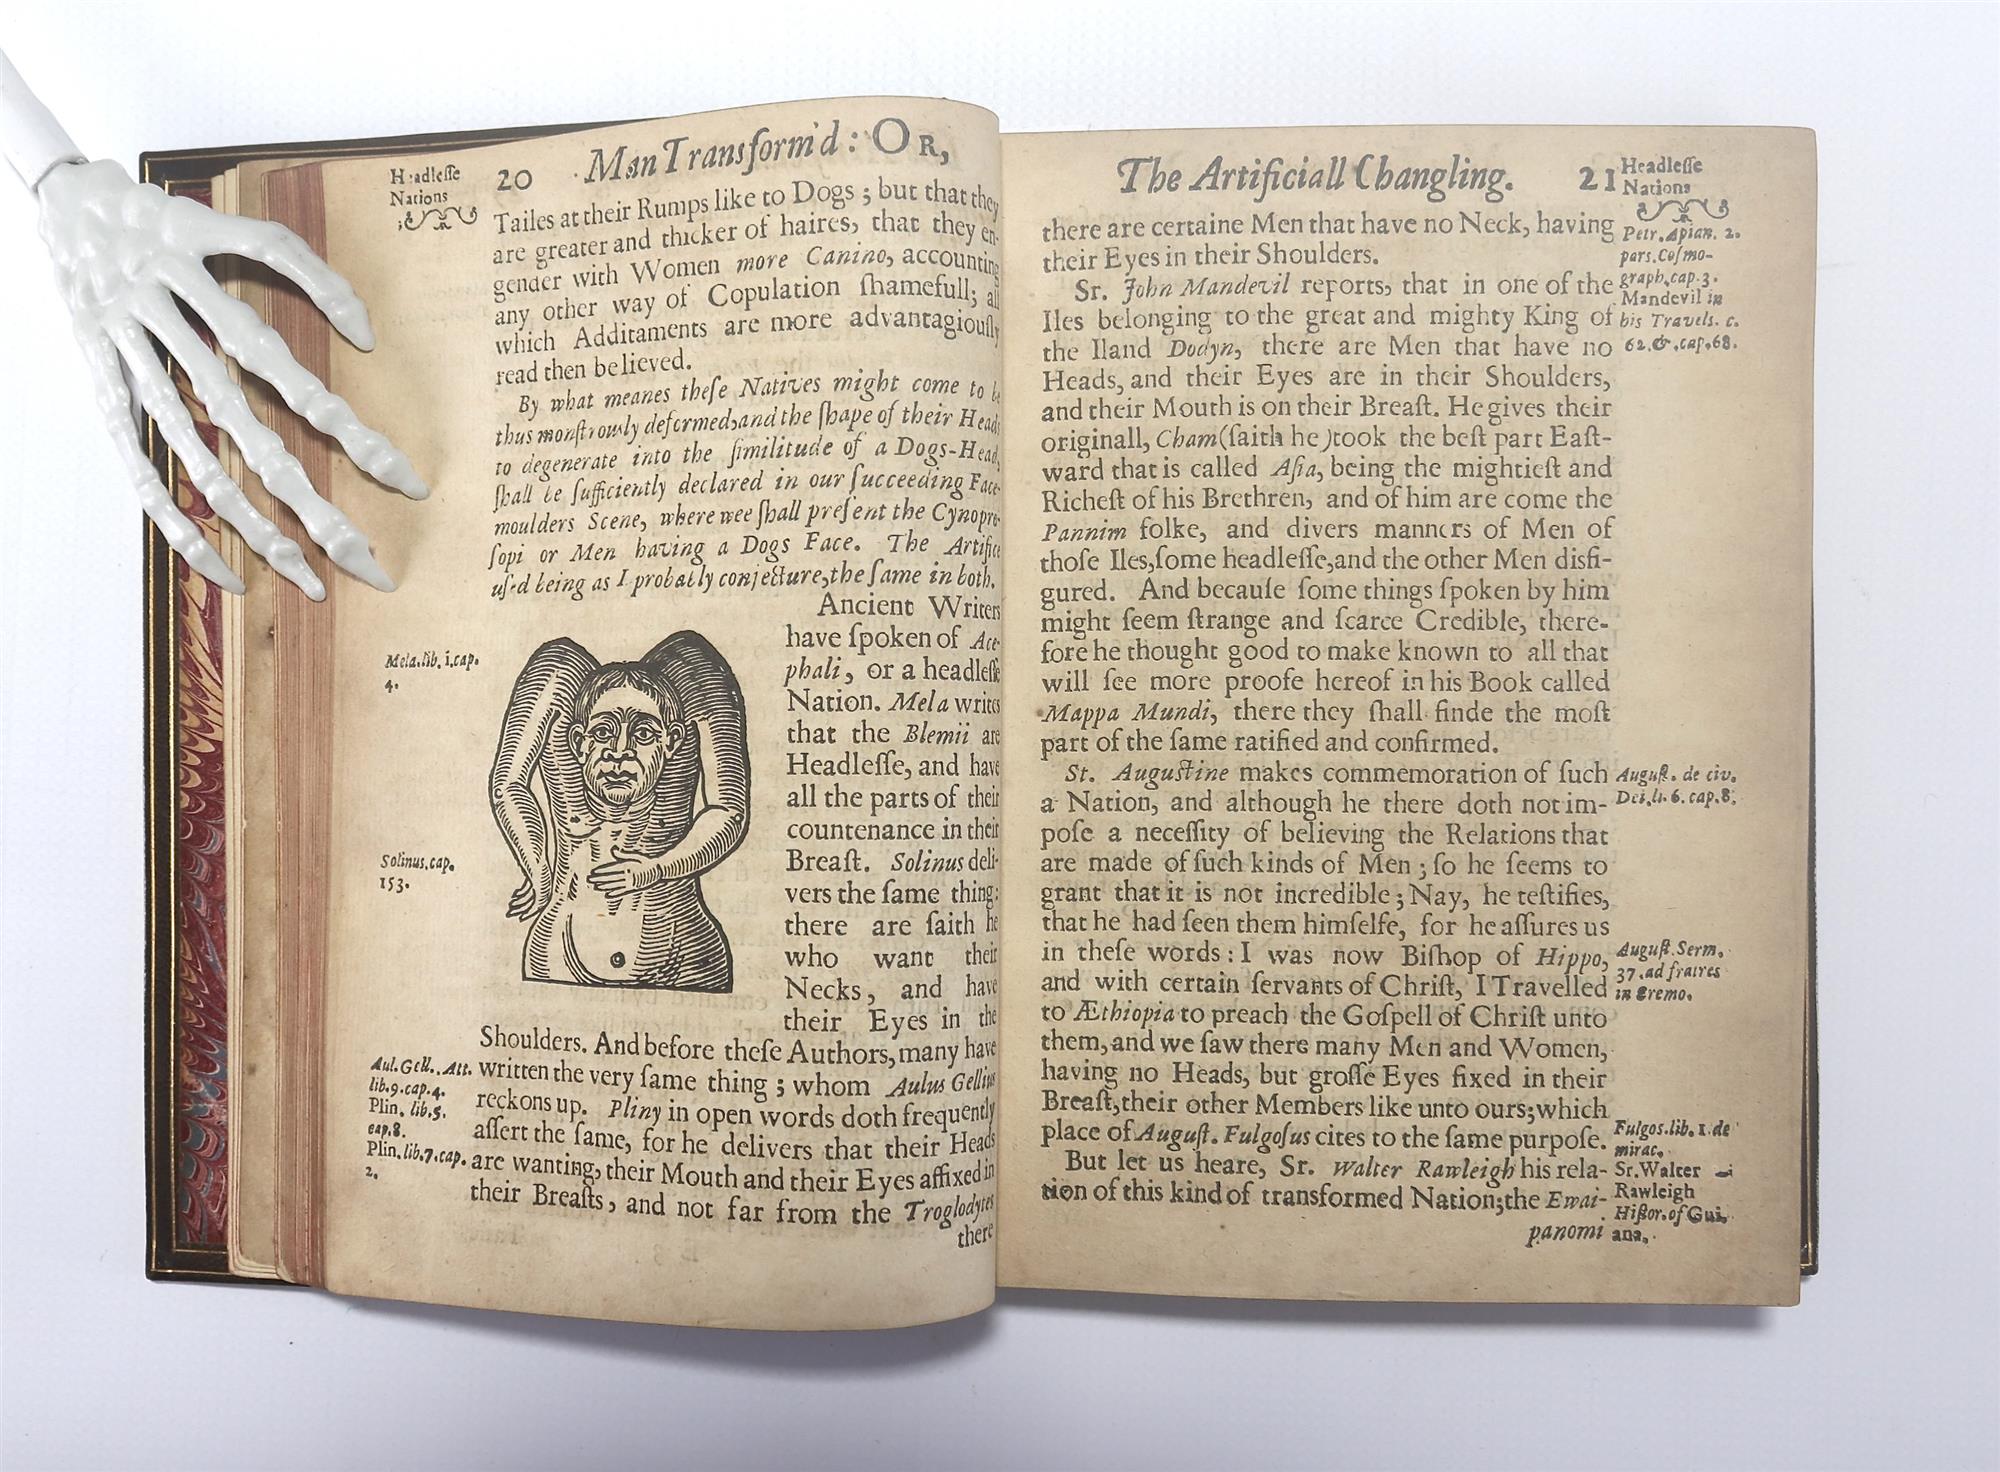 Headleſſe
Nations
20 Man Transform'd: OR,
Tailes at their Rumps like to Dogs; but that they
are greater and thicker of haires, that they en-
gender with Women more Canino, accounting
any other way of Copulation ſhamefull; all
which Additaments are more advantagiouſly
read then believed.
By what meanes theſe Natives might come to be
thus monſtrouſly deformed, and the ſhape of their Heads
to degenerate into the ſimilitude of a Dogs-Head,
ſhall be ſufficiently declared in our ſucceeding Face-
moulders Scene, where wee ſhall preſent the Cynopro-
ſopi or Men having a Dogs Face. The Artifice
uſed being as I probably conjecture, the ſame in both.
Ancient Writers
have ſpoken of Ace-
phali, or a headleſſe
Nation. Mela writes
that the Blemii are
Headleſſe, and have
all the parts of their
countenance in their
Breaſt. Solinus deli-
vers the ſame thing:
there are ſaith he
who want their
Necks, and have
their Eyes in the
Shoulders. And before theſe Authors, many have
written the very ſame thing; whom Aulus Gellius
reckons up. Pliny in open words doth frequently
aſſert the ſame, for he delivers that their Heads
are wanting, their Mouth and their Eyes affixed in
their Breaſts, and not far from the Troglodytes
there
Mela. lib. 1. cap.
4.
Solinus. cap.
153.
Aul. Gell. Att.
lib. 9. cap. 4.
Plin. lib. 5.
cap. 8.
Plin. lib. 7. cap.
2.
The Artificiall Changling. 21
Headleſſe
Nations
there are certaine Men that have no Neck, having
their Eyes in their Shoulders.
Sr. John Mandevil reports, that in one of the
Iles belonging to the great and mighty King of
the Iland Dodyn, there are Men that have no
Heads, and their Eyes are in their Shoulders,
and their Mouth is on their Breaſt. He gives their
originall, Cham (ſaith he) took the beſt part Eaſt-
ward that is called Aſia, being the mightieſt and
Richeſt of his Brethren, and of him are come the
Pannim folke, and divers manners of Men of
thoſe Iles, ſome headleſſe, and the other Men disfi-
gured. And becauſe ſome things ſpoken by him
might ſeem ſtrange and ſcarce Credible, there-
fore he thought good to make known to all that
will ſee more proofe hereof in his Book called
Mappa Mundi, there they ſhall finde the moſt
part of the ſame ratified and confirmed.
St. Auguſtine makes commemoration of ſuch
a Nation, and although he there doth not im-
poſe a neceſſity of believing the Relations that
are made of ſuch kinds of Men; ſo he ſeems to
grant that it is not incredible; Nay, he teſtifies,
that he had ſeen them himſelfe, for he aſſures us
in theſe words: I was now Biſhop of Hippo,
and with certain ſervants of Chriſt, I Travelled
to Æthiopia to preach the Goſpell of Chriſt unto
them, and we ſaw there many Men and Women,
having no Heads, but groſſe Eyes fixed in their
Breaſt, their other Members like unto ours; which
place of Auguſt. Fulgoſus cites to the ſame purpoſe.
But let us heare, Sr. Walter Rawleigh his rela-
tion of this kind of transformed Nation; the Ewai-
panomi
Petr. Apian. 2.
pars. Coſmo-
graph. cap. 3.
Mandevil in
his Travels. c.
62. &. cap. 68.
Auguſt. de civ.
Dei. li. 6. cap. 8.
Auguſt. Serm.
37. ad fratres
in Eremo.
Fulgos. lib. 1. de
mirac.
Sr. Walter
Rawleigh
Hiſtor. of Gui
ana.